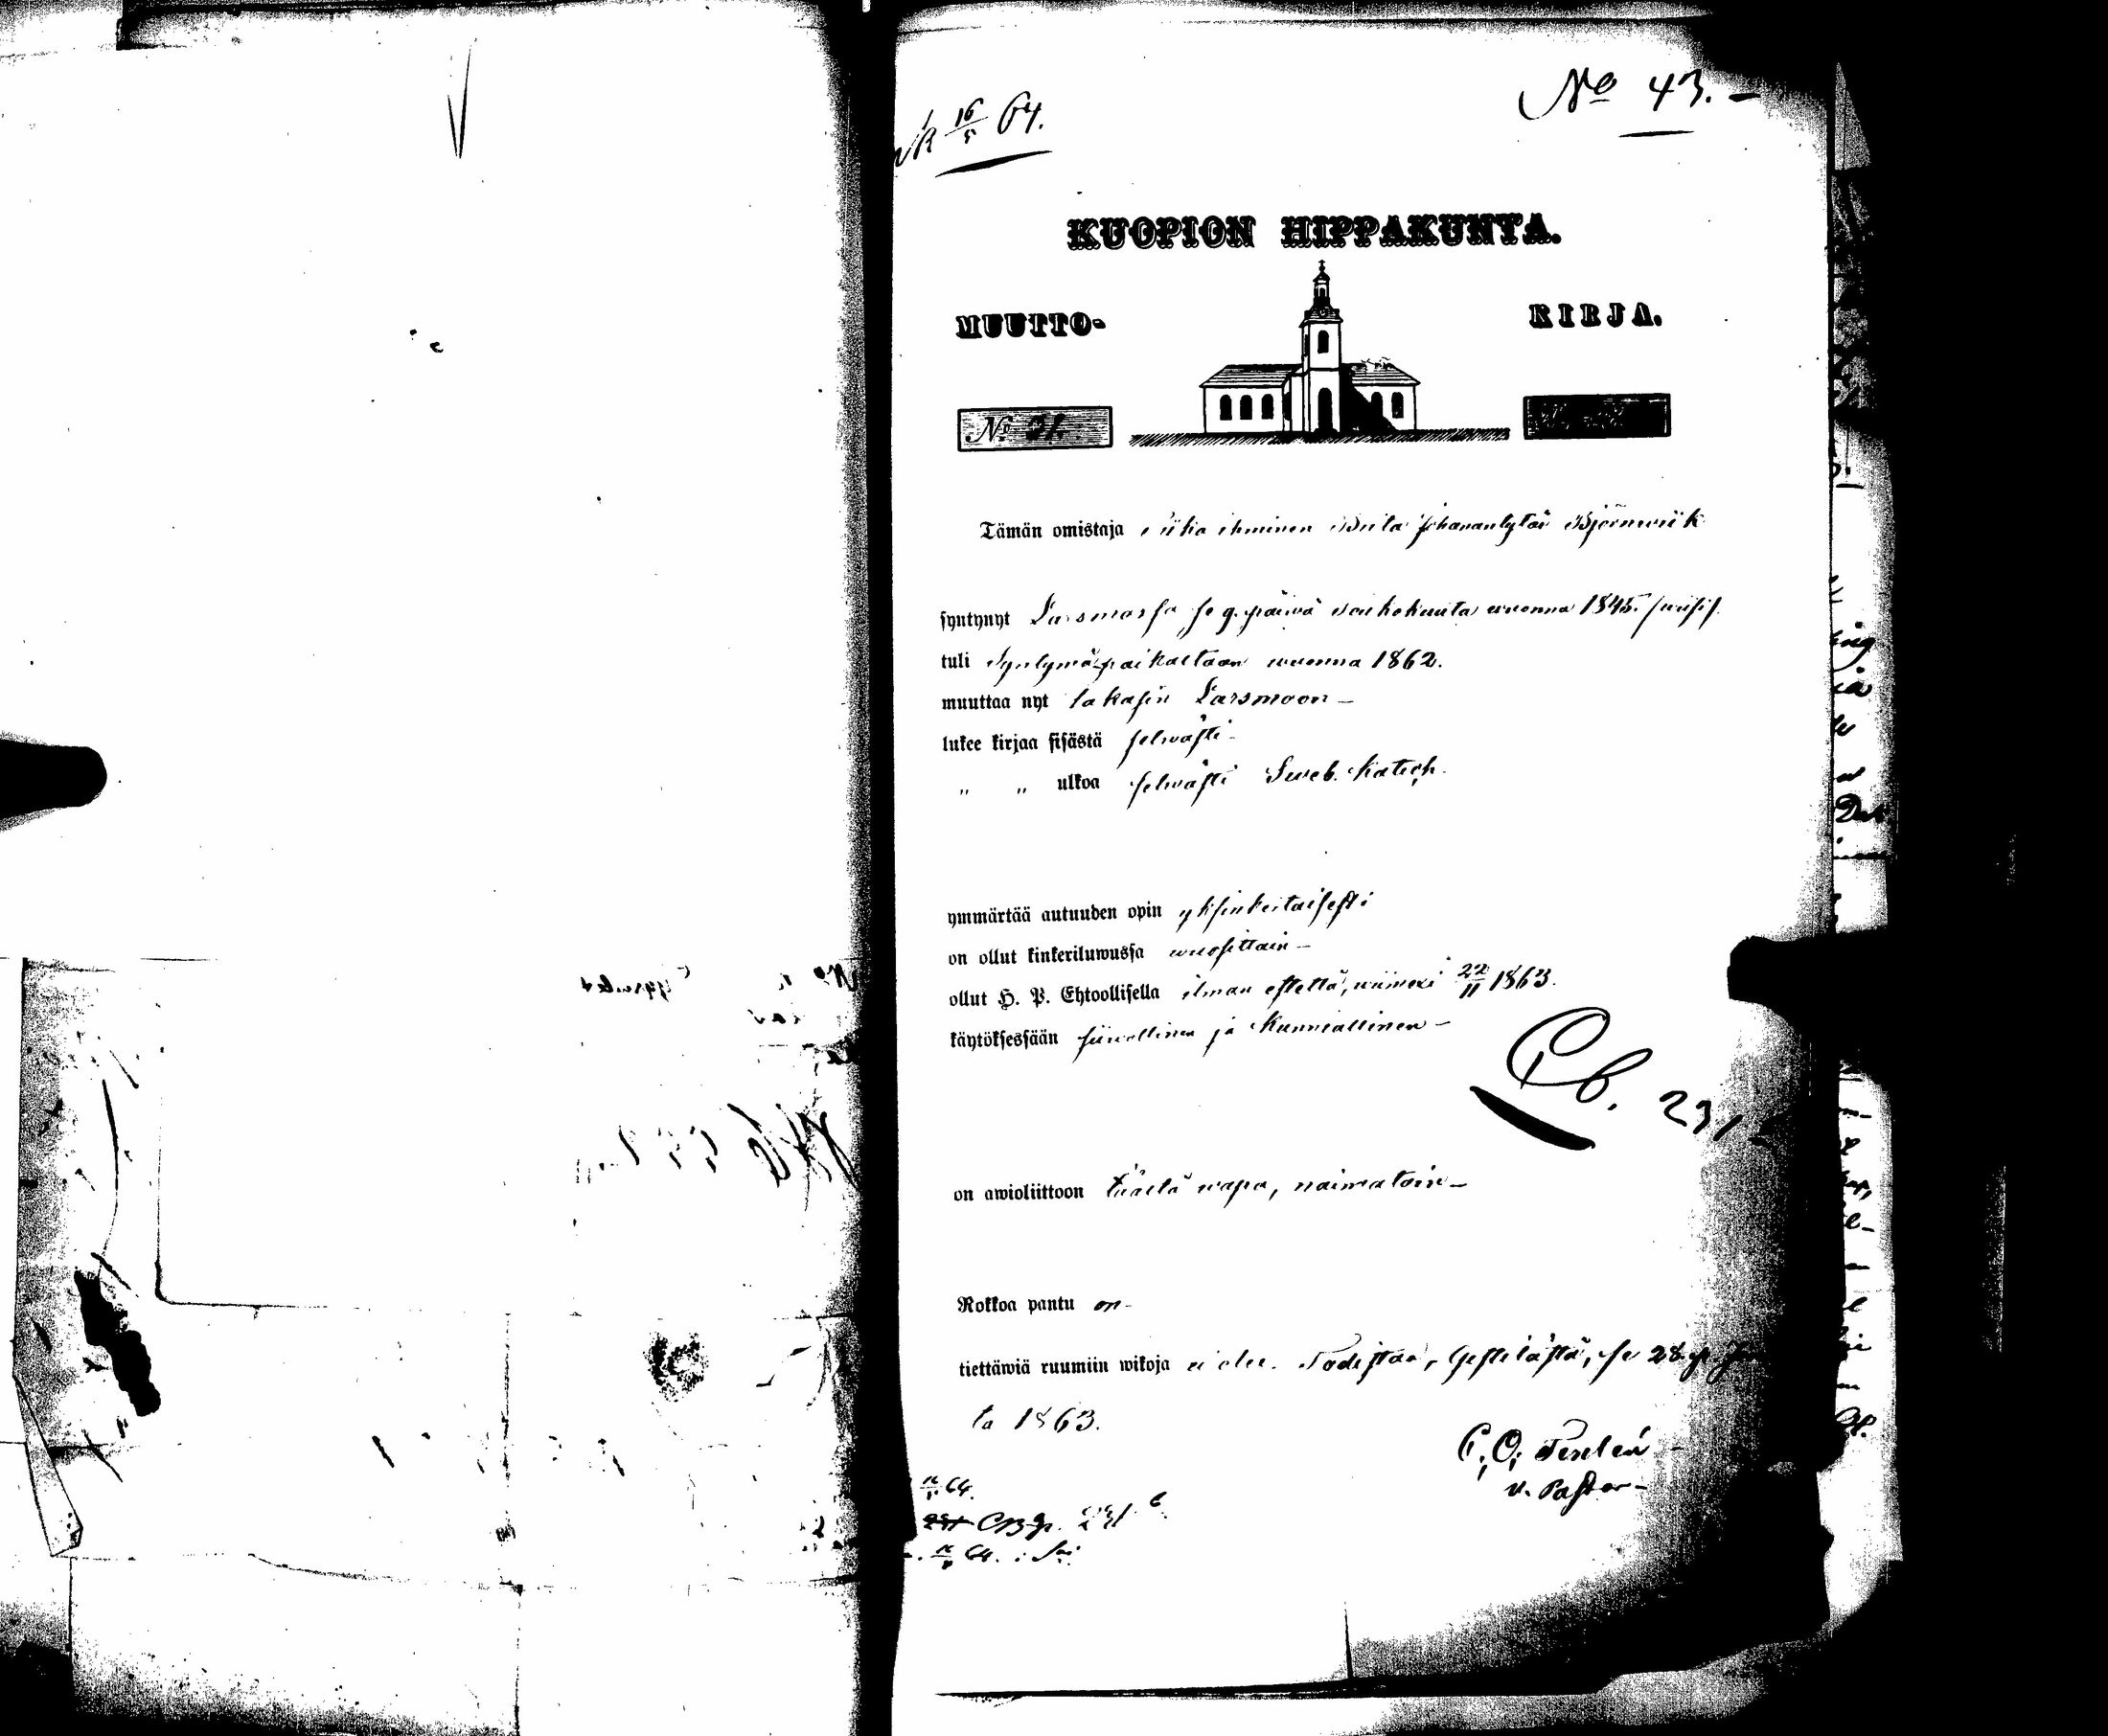 No 43.
16/5 64.
KUOPION HIPPAKUNTA.
MUUTTO- KIRJA.
No 31.
Tämän omistaja Piika ihminen Brita Johanantytär Björnwiik
syntynyt Larsmossa se 9. päiwä toukokuuta wuonna 1845.
tuli Syntymäpaikaltaan wuonna 1862.
muuttaa nyt takasin Larsmoon –
lukee kirjaa sisästä selwästi –
„ „ ulkoa selwästi Sweb. Katech.
ymmärtää autuuden opin yksinkertaisesti
on ollut kinkeriluwussa wuosittain –
ollut H. P. Ehtoollisella ilman estettä, wiimexi 22/11 1863.
käytöksessään siiwollinen ja kunniallinen –
Cb. 231
on awioliittoon täältä wapa, naimatoin –
Rokkoa pantu on –
tiettäwiä ruumiin wikoja ei ole. Todistaa, Gestilästä, se 28. p.
ta 1863.
C. O.
v. Pastor –
64.
231
64.